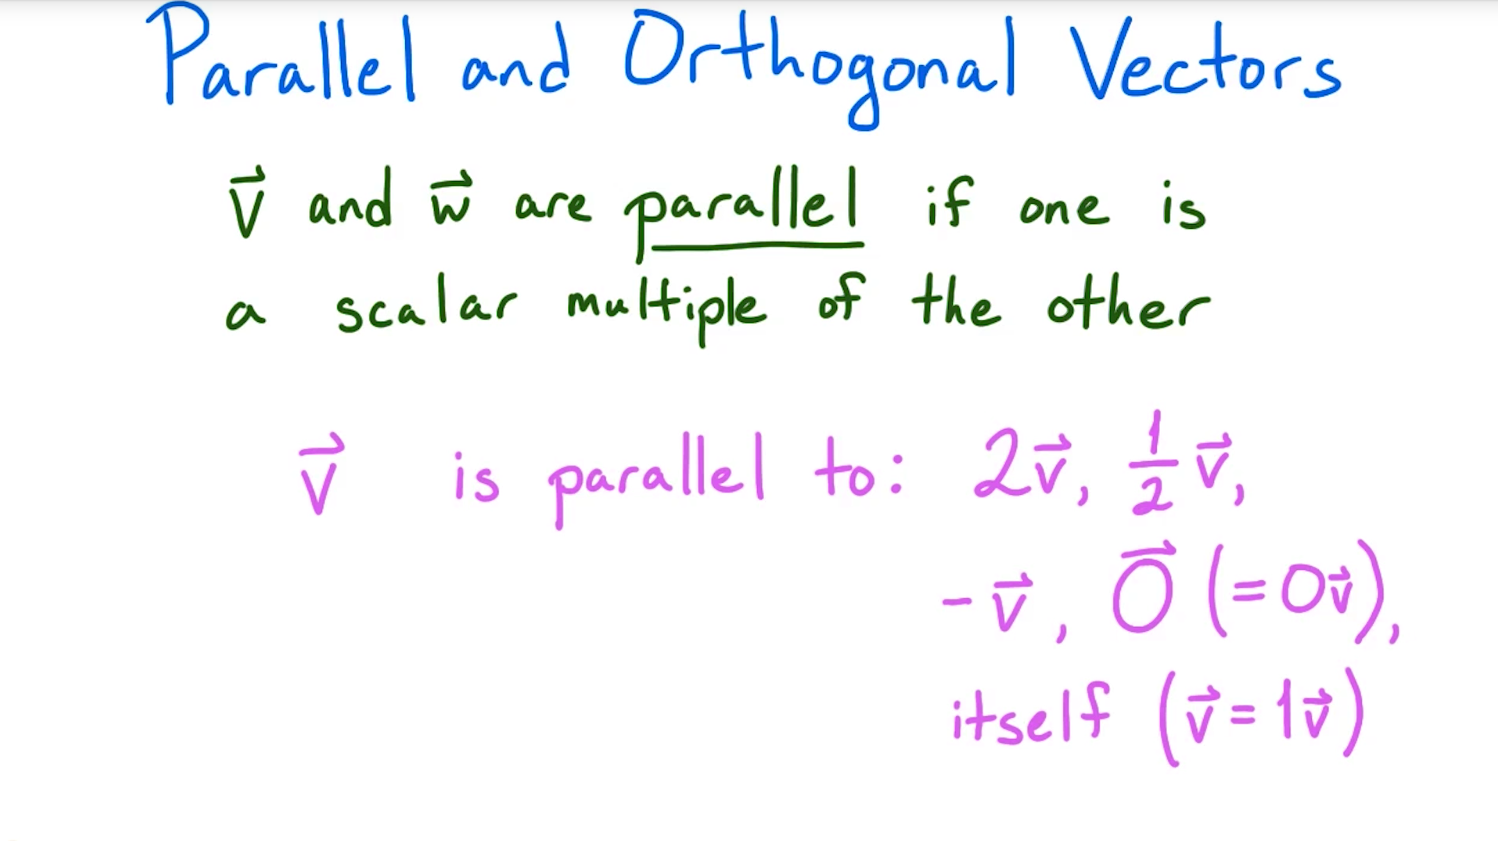 Parallel and Orthogonal Vectors
v⃗ and w⃗ are parallel if one is
a scalar multiple of the other
v⃗ is parallel to: 2v⃗, 1/2 v⃗,
-v⃗, 0⃗ (=0v⃗),
itself (v⃗=1v⃗)